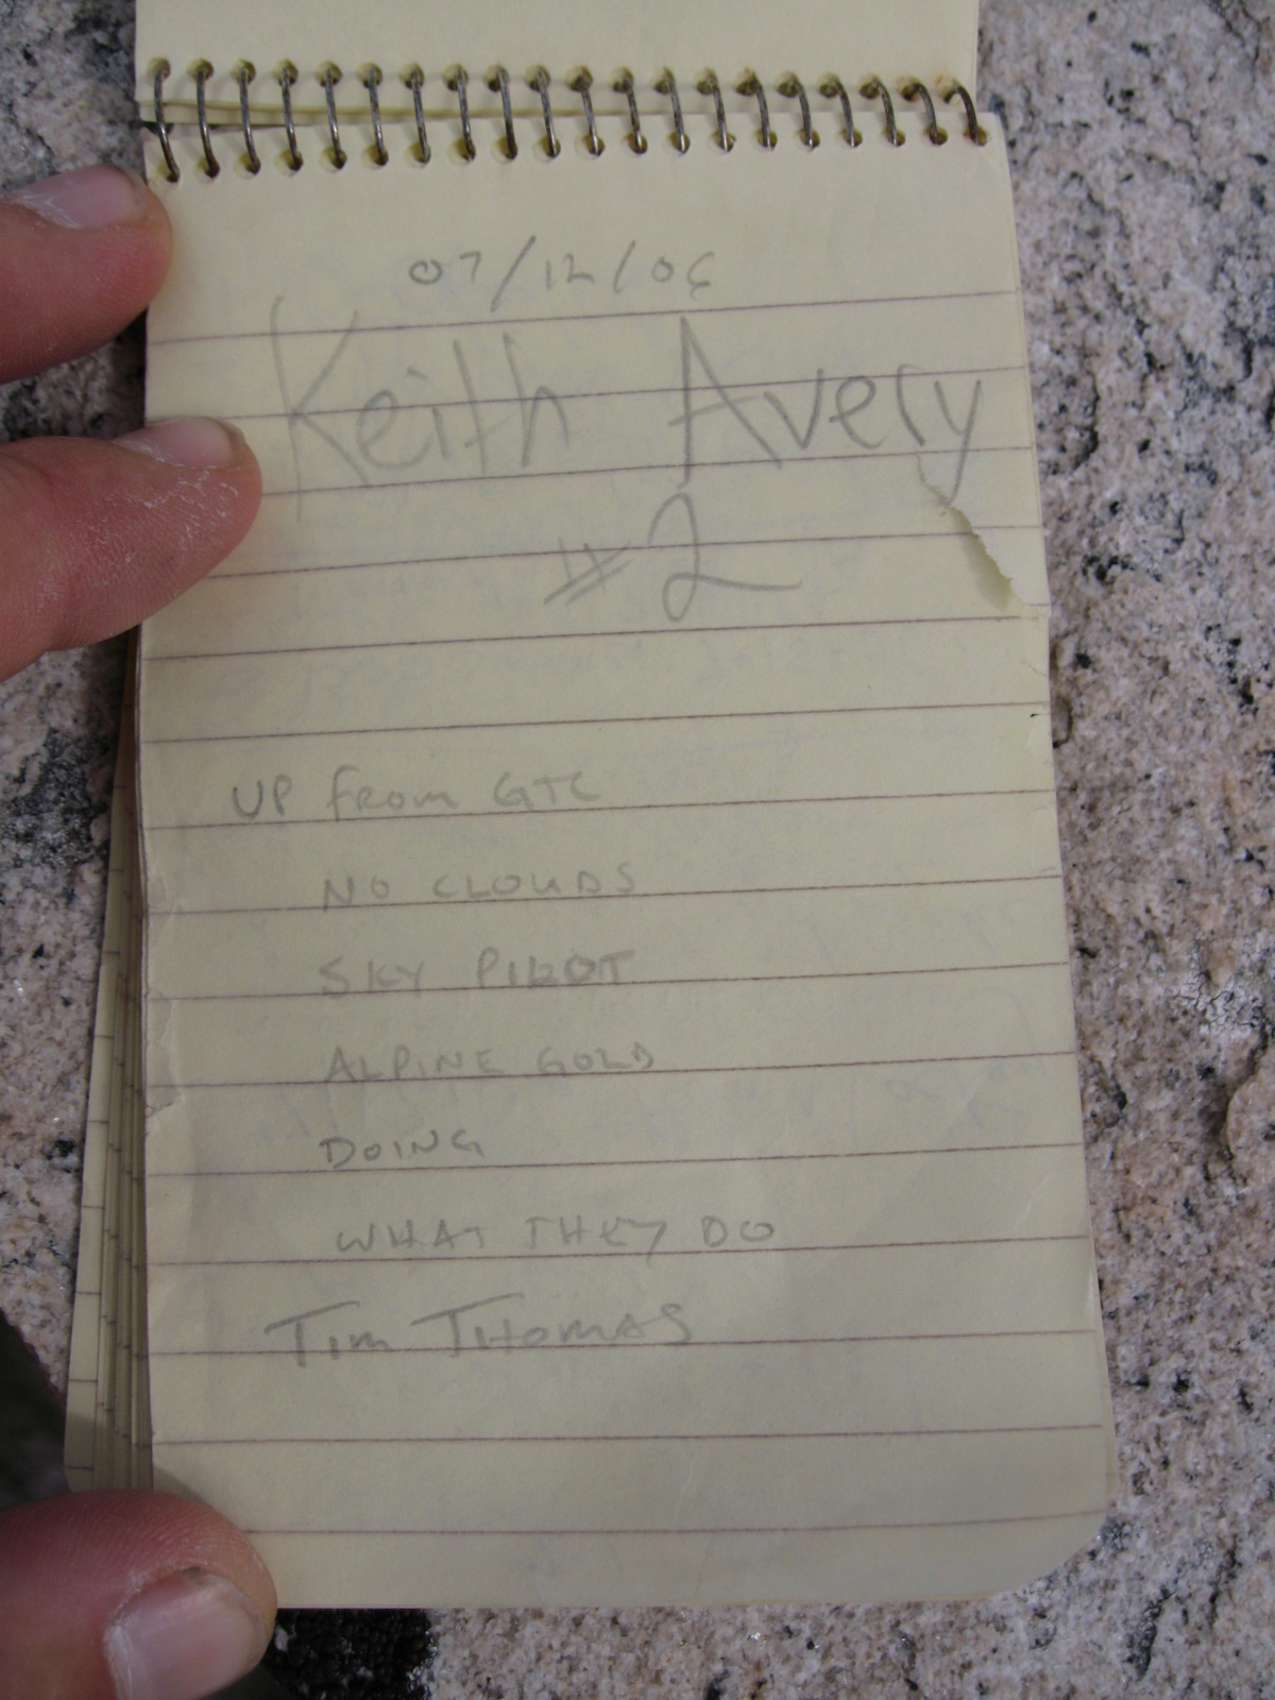 07/12/06
Keith Avery
#2
UP from GTC
NO CLOUDS
SKY PILOT
ALPINE GOLD
DOING
WHAT THEY DO
Tim THOMAS